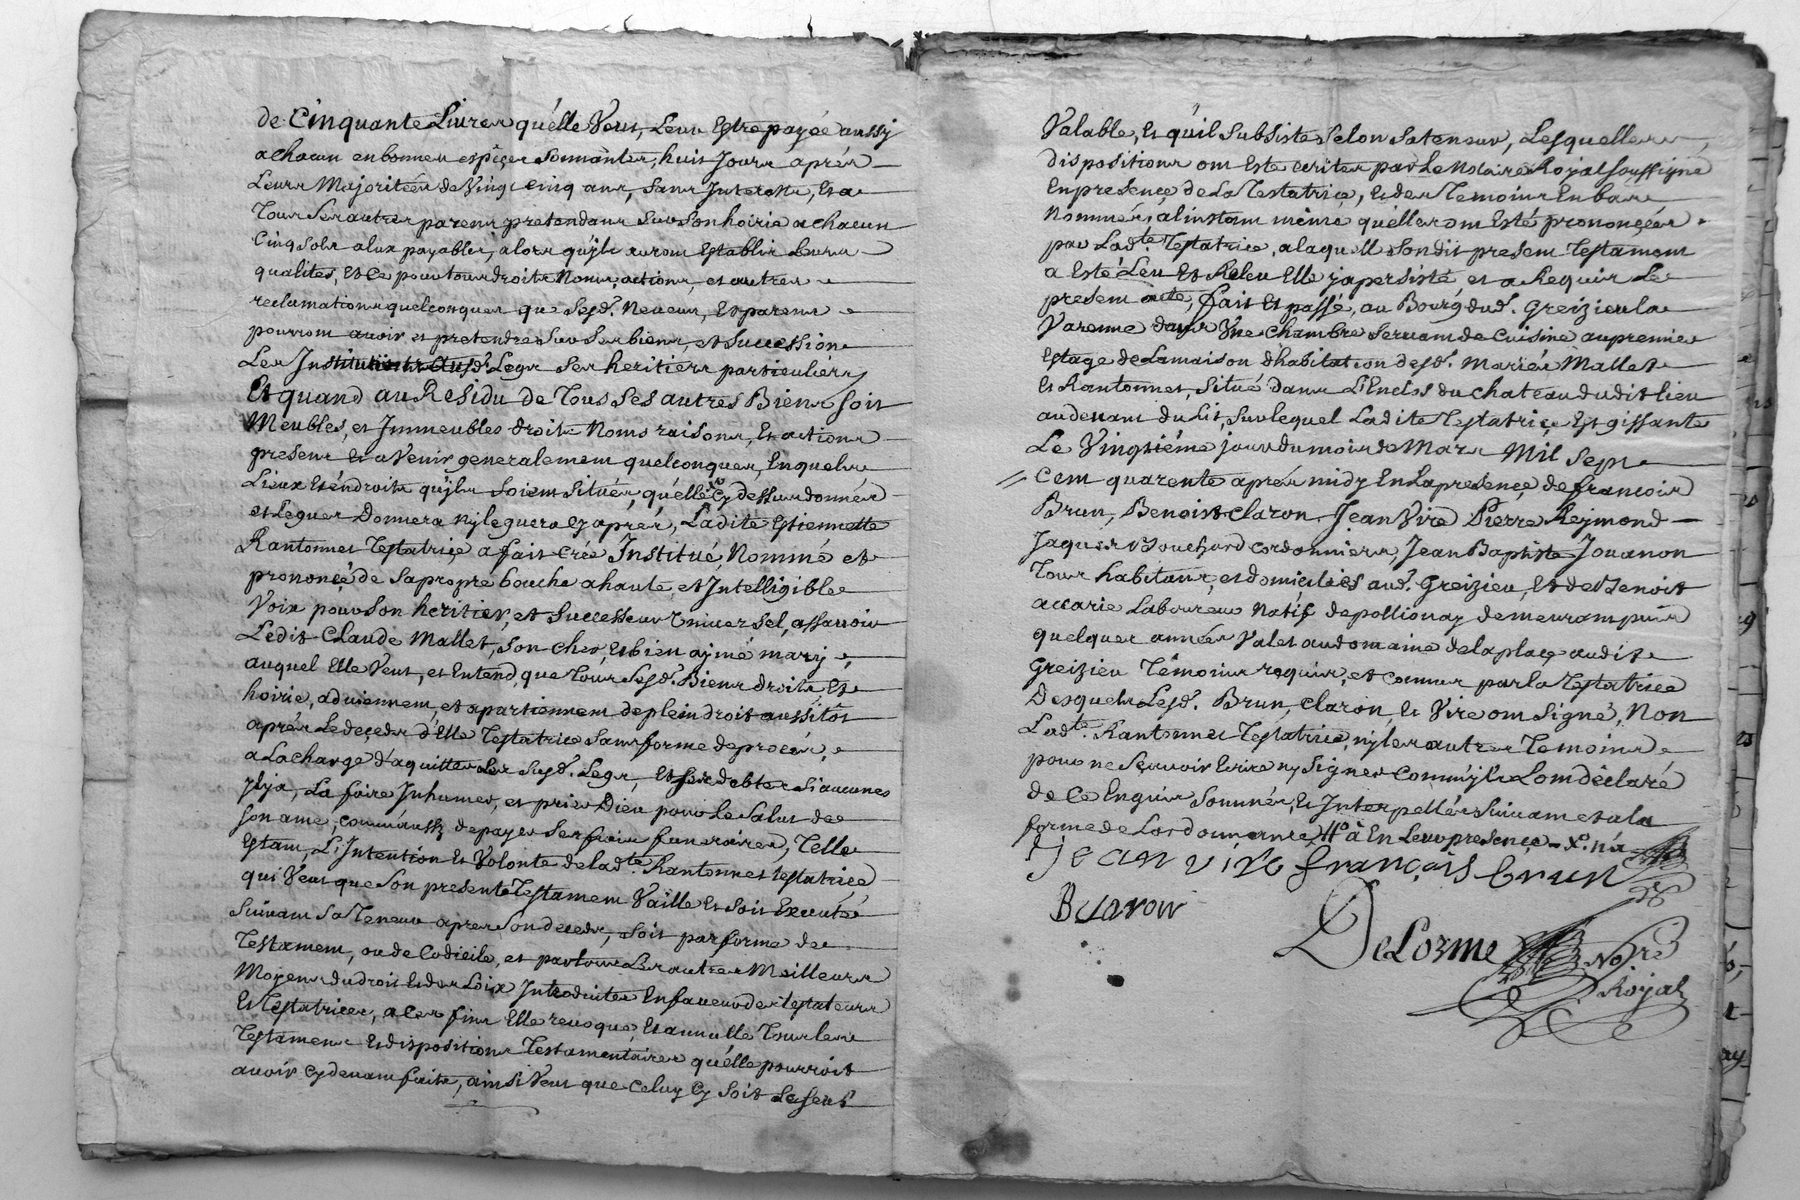 de Cinquante Livres qu'elle Veut, Leur Estre payée aussy
a chacun en bonnes espèçes Sonnantes, huit Jours aprés
Leurs Majoritées de Vingt cinq ans, sans Interests, Et a
Tous Ses autres parens pretendans Sur Son hoirie a chacun
Cinq Sols a eux payables, alors qu'jls auront Establis Leurs
qualites, Et Ce pour tous droits Noms, actions, et autres
reclamations quelconques que Sesd. Neveux, Et parens
pourront avoir et pretendre Sur Ses biens et Succession
Les Instituant Ausd. Legs Ses heritiers particuliers
Et quand au Residu de Tous Ses autres Biens soit
Meubles, et Immeubles droits Noms raisons, Et actions
presens Et a Venir generalement quelconques, En quels
Lieux Et éndroits qu'jls Soient Situés, qu'elle Cy dessus donnés
et Legues Donnera ny leguera cy aprés, Ladite Estiennette
Rantonnet Testatriçe a fait créé Institué, Nommé et
prononçé de Sa propre bouche a haute et Intelligible
Voix pour Son heritier, et Successeur Universel, assavoir
Ledit Claude Mallet, Son Cher, Et bien aymé mary,
auquel Elle Veut, et Entend que Tous Sesd. Biens droits, Et
hoirie, adviennent, et apartiennent de plein droit aussitôt
aprés Le deçeds d'Elle Testatrice Sans forme de procés,
a La charge d'aquitter Les Susd. Legs, Et Ses debtes Si aucunes
jl y a, La faire Inhumer, et prier Dieu pour Le Salut de
Son ame, comm'aussy de payer Ses frais funeraires, Telle
Estant, L'Intention Et Volonte de Lad.te Rantonnet testatrice
qui Veut que Son present Testament Vaille Et Soit Executé
Suivant Sa Teneur apres Son deceds, Soit par forme de
Testament, ou de Codicile, et par tous Les autres Meilleurs
Moyens du droit Et des Loix Introduites En faveur des testateurs
Et Testatrices, a Ces fins Elle revoque, Et annulle Tous Les
Testamens Et dispositions Testamentaires qu'elle pourroit
avoir Cy devant faits, ainsi Veut que Celuy Cy Soit Le Seul
Valable, Et qu'il Subsiste Selon Sa teneur, Lesquelles
dispositions ont Esté écrites par Le Notaire Royal Soussigné
En presençe de La Testatrice, Et des Temoins En bas
Nommés, a l'instant même qu'elles ont Esté prononçées
par Lad.te Testatrice, a laquelle Son dit present Testament
a Esté Leu Et Releu Elle y a persisté, et a Requis Le
present acte, fait Et passé, au Bourg dud. Greizieu la
Varenne dans Une chambre Servant de Cuisine au premier
Estage de La maison d'habitation desd. Mariés Mallet
Et Rantonnet, Situé dans L'Enclos du Chateau dudit lieu
au devant du Lit, Sur lequel Ladite Testatriçe Est gissante
Le Vingtiéme jour du mois de Mars Mil Sept
Cent quarente aprés midy En La presençe de francois
Brun, Benoist Claron, Jean Vire Pierre Reymond
Jaques Bouchard cordonniers, Jean Baptiste Jouanon
Tous habitans, et domiciliés aud. Greizieu, Et de Benoit
accarie Laboureur Natif de pollionay demeurant puis
quelques années Valet au domaine de la plaçe audit
Greizieu Témoins requis, et connus par la Testatrice
Desquels Lesd. Brun, Claron, Et Vire ont Signé, Non
Lad.te Rantonnet Testatrice, ny les autres Temoins
pour ne Sçavoir Ecrire ny Signer Comm'jls L'ont déclaré
de Ce Enquis Sommés, Et Interpellés Suivant et a la
forme de Lordonnance, à En Leur presençe
Jean Vire françois brun
B claron
DeLorme No.re
Royal